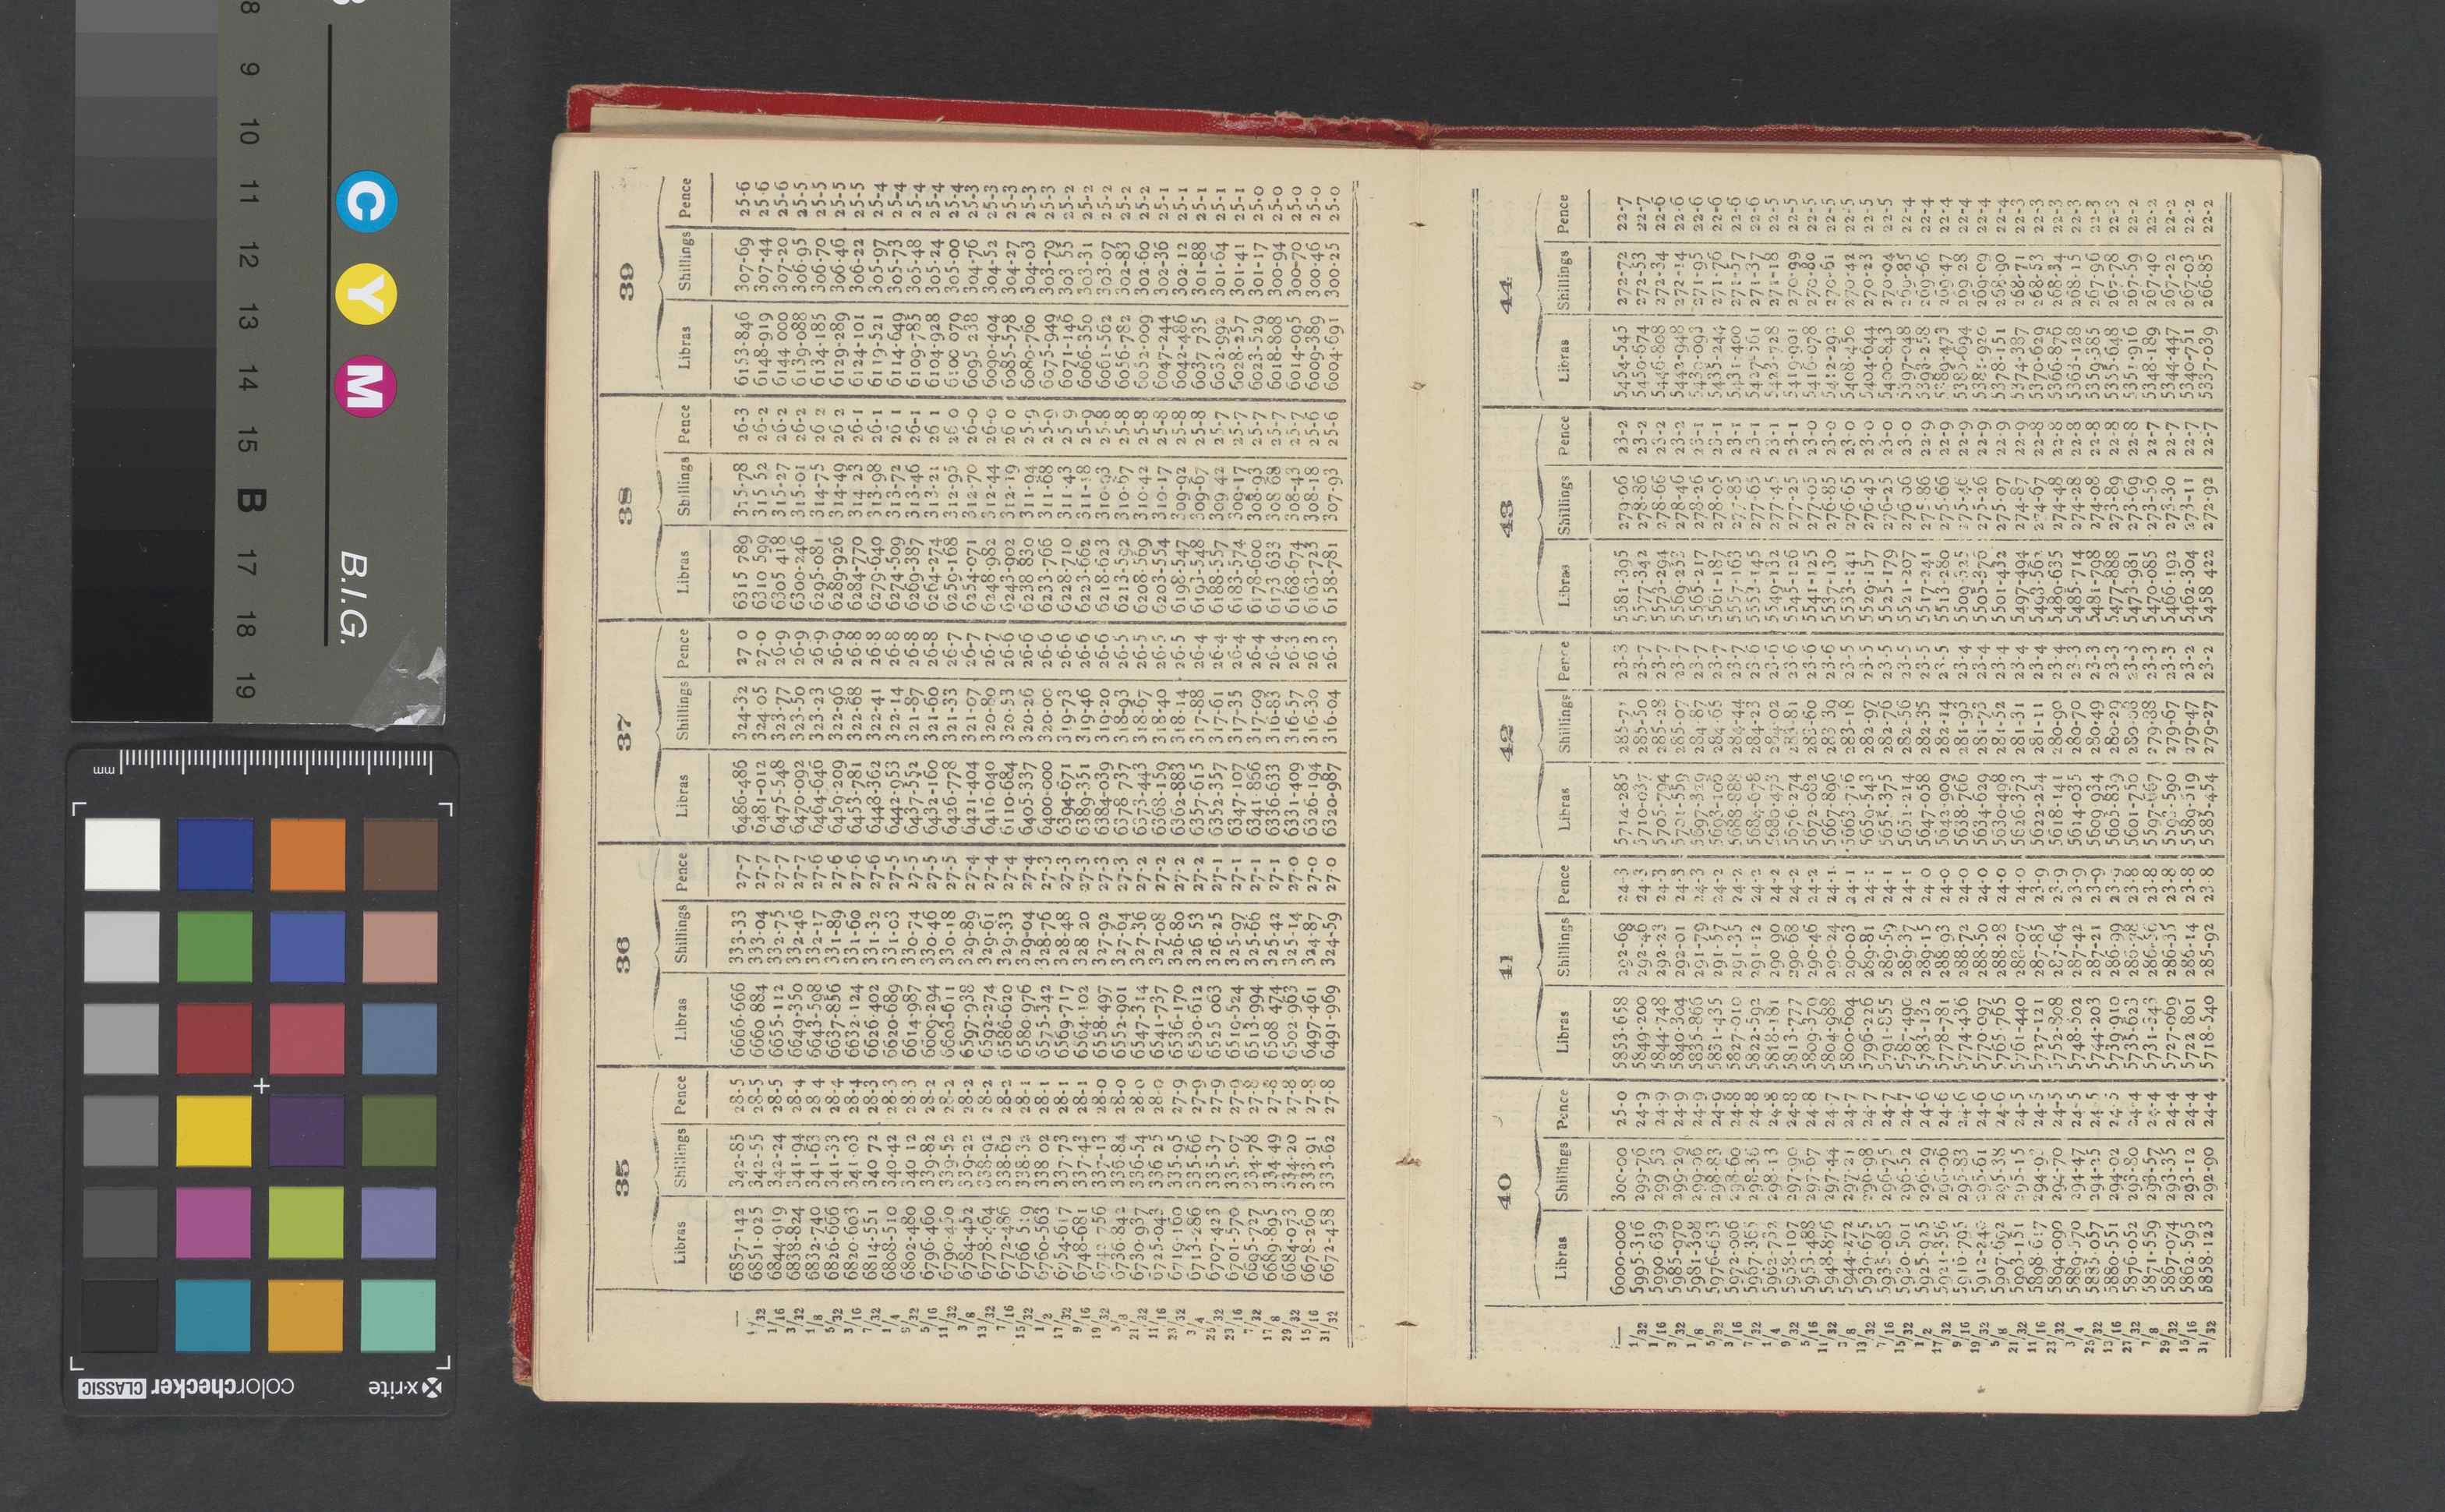 8 9 10 11 12 13 14 15 B 17 18 19
C Y M
B.I.G.
mm
x-rite
colorchecker CLASSIC
35 36 37 38 39
Libras Shillings Pence Libras Shillings Pence Libras Shillings Pence Libras Shillings Pence Libras Shillings Pence
— 6857-142 342-85 28-5 6666-666 333-33 27-7 6486-486 324-32 27 0 6315 789 315-78 26-3 6153-846 307-69 25-6
1/32 6851-025 342-55 28-5 6660 884 333-04 27-7 6481-012 324 05 27-0 6310 599 315 52 26-2 6148-919 307-44 25-6
1/16 6844-919 342-24 28-5 6655-112 332-75 27-7 6475-548 323-77 26-9 6305 418 315-27 26-2 6144 000 307-20 25-6
3/32 6838-824 341-94 28-4 6649-350 332-46 27-7 6470-092 323-50 26-9 6300-246 315-01 26-2 6139-088 306-95 25-5
1/8 6832-740 341-63 28 4 6643-598 332-17 27-6 6464-646 323-23 26-9 6295-081 314-75 26 2 6134-185 306-70 25-5
5/32 6826-666 341-33 28-4 6637-856 331-89 27-6 6459-209 322-96 26-9 6289-926 314-49 26 2 6129-289 306-46 25-5
3/16 6820-603 341-03 28-4 6632-124 331-60 27-6 6453-781 322-68 26-8 6284-770 314 23 26-1 6124-101 306-22 25-5
7/32 6814-551 340 72 28-3 6626-402 331-32 27-6 6448-362 322-41 26-8 6279-640 313-98 26-1 6119-521 305-97 25-4
1/4 6808-510 340-42 28-3 6620-689 331-03 27-5 6442-953 322-14 26-8 6274-509 313-72 26 1 6114-649 305-73 25-4
9/32 6802-480 340 12 28-3 6614-987 330-74 27-5 6437-552 321-87 26-8 6269-387 313-46 26-1 6109-785 305-48 25-4
5/16 6796-460 339-82 28-2 6609-294 330-46 27-5 6432-160 321-60 26-8 6264-274 313-21 26 1 6104-928 305-24 25-4
11/32 6790-450 339-52 28-2 6603-611 330-18 27-5 6426-778 321-33 26-7 6259-168 312-95 26 0 6100 079 305-00 25-4
3/8 6784-452 339-22 28-2 6597-938 329-89 27-4 6421-404 321-07 26-7 6254-071 312-70 26-0 6095 238 304-76 25-3
13/32 6778-464 338-92 28-2 6592-274 329-61 27-4 6416-040 320-80 26-7 6248-982 312-44 26-0 6090-404 304-52 25-3
7/16 6772-486 338-62 28-2 6586-620 329-33 27-4 6410-684 320-53 26-6 6243-902 312-19 26 0 6085-578 304-27 25-3
15/32 6766 519 338-32 28-1 6580-976 329-04 27-4 6405-337 320-26 26-6 6238 830 311-94 25-9 6080-760 304-03 25-3
1/2 6760-563 338 02 28-1 6575-342 328-76 27-3 6400-000 320-00 26-6 6233-766 311-68 25-9 6075-949 303-79 25-3
17/32 6754-617 337-73 28-1 6569-717 328-48 27-3 6394-671 319-73 26-6 6228-710 311-43 25 9 6071-146 303 55 25-2
9/16 6748-681 337-43 28-1 6564-102 328 20 27-3 6389-351 319-46 26-6 6223-662 311-18 25-9 6066-350 303-31 25-2
19/32 6742 756 337-13 28-0 6558-497 327-92 27-3 6384-039 319-20 26-6 6218-623 310-93 25-8 6061-562 303-07 25-2
5/8 6736-842 336-84 28-0 6552-901 327-64 27-3 6378 737 318-93 26-5 6213-592 310-67 25-8 6056-782 302-83 25-2
21/32 6730-937 336-54 28-0 6547-314 327-36 27-2 6373-443 318-67 26-5 6208-569 310-42 25-8 6052-009 302-60 25-2
11/16 6725-043 336 25 28-0 6541-737 327-08 27-2 6368-159 318-40 26-5 6203-554 310-17 25-8 6047-244 302-36 25-1
23/32 6719-160 335-95 27-9 6536-170 326-80 27-2 6362-883 318-14 26-5 6198-547 309-92 25-8 6042-486 302-12 25-1
3/4 6713-286 335-66 27-9 6530-612 326 53 27-2 6357-615 317-88 26-4 6193-548 309-67 25-8 6037 735 301-88 25-1
25/32 6707-423 335-37 27-9 6525 063 326-25 27-1 6352-357 317-61 26-4 6188-557 309 42 25-7 6032-992 301-64 25-1
23/16 6701-570 335-07 27-9 6519-524 325-97 27-1 6347-107 317-35 26-4 6183-574 309-17 25-7 6028-257 301-41 25-1
7/32 6695-727 334-78 27-8 6513-994 325-66 27-1 6341-866 317-09 26-4 6178-600 308-93 25-7 6023-529 301-17 25-0
17/8 6689-895 334-49 27-8 6508 474 325-42 27-1 6336-633 316-83 26-4 6173 633 308 68 25-7 6018-808 300-94 25-0
29/32 6684-073 334-20 27-8 6502-963 325-14 27-0 6331-409 316-57 26-3 6168-674 308-43 25-7 6014-095 300-70 25-0
15/16 6678-260 333-91 27-8 6497-461 324-87 27-0 6326-194 316-30 26 3 6163-723 308-18 25-6 6009-389 300-46 25-0
31/32 6672-458 333-62 27-8 6491-969 324-59 27-0 6320-987 316-04 26-3 6158-781 307-93 25-6 6004-691 300-25 25-0
40 41 42 43 44
Libras Shillings Pence Libras Shillings Pence Libras Shillings Pence Libras Shillings Pence Libras Shillings Pence
— 6000-000 300-00 25-0 5853-658 292-68 24-3 5714-285 285-71 23-8 5581-395 279-06 23-2 5454-545 272-72 22-7
1/32 5995-316 299-76 24-9 5849-200 292-46 24-3 5710-037 285-50 23-7 5577-342 278-86 23-2 5450-674 272-53 22-7
1/16 5990-639 299 53 24-9 5844-748 292-23 24-3 5705-794 285-28 23-7 5573-294 278-66 23-2 5446-808 272-34 22-6
3/32 5985-970 299-29 24-9 5840-304 292-01 24-3 5701-559 285-07 23-7 5569-253 278-46 23-2 5442-948 272-14 22-6
1/8 5981-308 299-06 24-9 5835-866 291-79 24-3 5697-329 284-87 23-7 5565-217 278-26 23-1 5439-093 271-95 22-6
5/32 5976-653 298-83 24-9 5831-435 291-57 24-2 5693-106 284-65 23-7 5561-187 278-05 23-1 5435-244 271-76 22-6
3/16 5972-006 298-60 24-8 5827-010 291-35 24-2 5688-888 284-44 23-7 5557-163 277-85 23-1 5431-400 271-57 22-6
7/32 5967-365 298-36 24-8 5822-592 291-12 24-2 5684-678 284-23 23-6 5553-145 277-65 23-1 5427-561 271-37 22-6
1/4 5962-732 298-13 24-8 5818-181 290 90 24-2 5680-473 284-02 23-6 5549-132 277-45 23-1 5423-728 271-18 22-5
9/32 5958-107 297-90 24-8 5813-777 290-68 24-2 5676-274 283-81 23-6 5545-126 277-25 23-1 5419-901 270-99 22-5
5/16 5953-488 297-67 24-8 5809-379 290-46 24-2 5672-082 283-60 23-6 5541-125 277-05 23-0 5416-078 270-80 22-5
11/32 5948-876 297-44 24-7 5804-988 290-24 24-1 5667-896 283 39 23-6 5537-130 276-85 23-0 5412-293 270-61 22-5
3/8 5944-272 297-21 24-7 5800-604 290-03 24-1 5663-716 283-18 23-5 5533-141 276-65 23-0 5408-450 270-42 22-5
13/32 5939-675 296-98 24-7 5796-226 289-81 24-1 5659-543 282-97 23-5 5529-157 276-45 23-0 5404-644 270-23 22-5
7/16 5935-085 296-75 24-7 5791-855 289-59 24-1 5655-375 282-76 23-5 5525-179 276-25 23-0 5400-843 270-04 22-5
15/32 5930-501 296-52 24-7 5787-490 289-37 24-1 5651-214 282-56 23-5 5521-207 276 06 23-0 5397-048 269-85 22-4
1/2 5925-925 296-29 24-6 5783-132 289-15 24-0 5647-058 282-35 23-5 5517-241 275-86 22-9 5393-258 269-66 22-4
17/32 5921-356 296-06 24-6 5778-781 288-93 24-0 5642-909 282-14 23-5 5513-280 275-66 22-9 5389-473 269-47 22-4
9/16 5916-795 295-83 24-6 5774-436 288-72 24-0 5638-766 281-93 23-4 5509-325 275-46 22-9 5385-694 269 28 22-4
19/32 5912-240 295-61 24-6 5770-097 288-50 24-0 5634-629 281-73 23-4 5505-376 275-26 22-9 5381-920 269-09 22-4
5/8 5907-692 295-38 24-6 5765-765 288-28 24-0 5630-498 281-52 23-4 5501-432 275-07 22-9 5378-151 268-90 22-4
21/32 5903-151 295-15 24-5 5761-440 288-07 24-0 5626-373 281-31 23-4 5497-494 274-87 22-9 5374-387 268-71 22-3
11/16 5898-617 294-93 24-5 5757-121 287-85 23-9 5622-254 281-11 23-4 5493-562 274-67 22-8 5370-629 268-53 22-3
23/32 5894-090 294-70 24-5 5752-808 287-64 23-9 5618-141 280-90 23-4 5489-635 274-48 22-8 5366-876 268-34 22-3
3/4 5889-570 294-47 24-5 5748-502 287-42 23-9 5614-035 280-70 23-3 5485-714 274-28 22-8 5363-128 268-15 22-3
25/32 5885-057 294-25 24-5 5744-203 287-21 23-9 5609-934 280-49 23-3 5481-798 274-08 22-8 5359-385 267-96 22-3
13/16 5880-551 294-02 24-5 5739-910 286-99 23-9 5605-839 280-29 23-3 5477-888 273-89 22-8 5355-648 267-78 22-3
27/32 5876-052 293-80 24-4 5735-623 286-78 23-8 5601-750 280-08 23-3 5473-981 273-69 22-8 5351-916 267-59 22-2
7/8 5871-559 293-57 24-4 5731-343 286-56 23-8 5597-667 279-88 23-3 5470-085 273-50 22-7 5348-189 267-40 22-2
29/32 5867-074 293-35 24-4 5727-069 286-35 23-8 5593-590 279-67 23-3 5466-192 273-30 22-7 5344-447 267-22 22-2
15/16 5862-595 293-12 24-4 5722 801 286-14 23-8 5589-519 279-47 23-2 5462-304 273-11 22-7 5340-751 267-03 22-2
31/32 5858-123 292-90 24-4 5718-540 285-92 23-8 5585-454 279-27 23-2 5458-422 272-92 22-7 5337-039 266-85 22-2